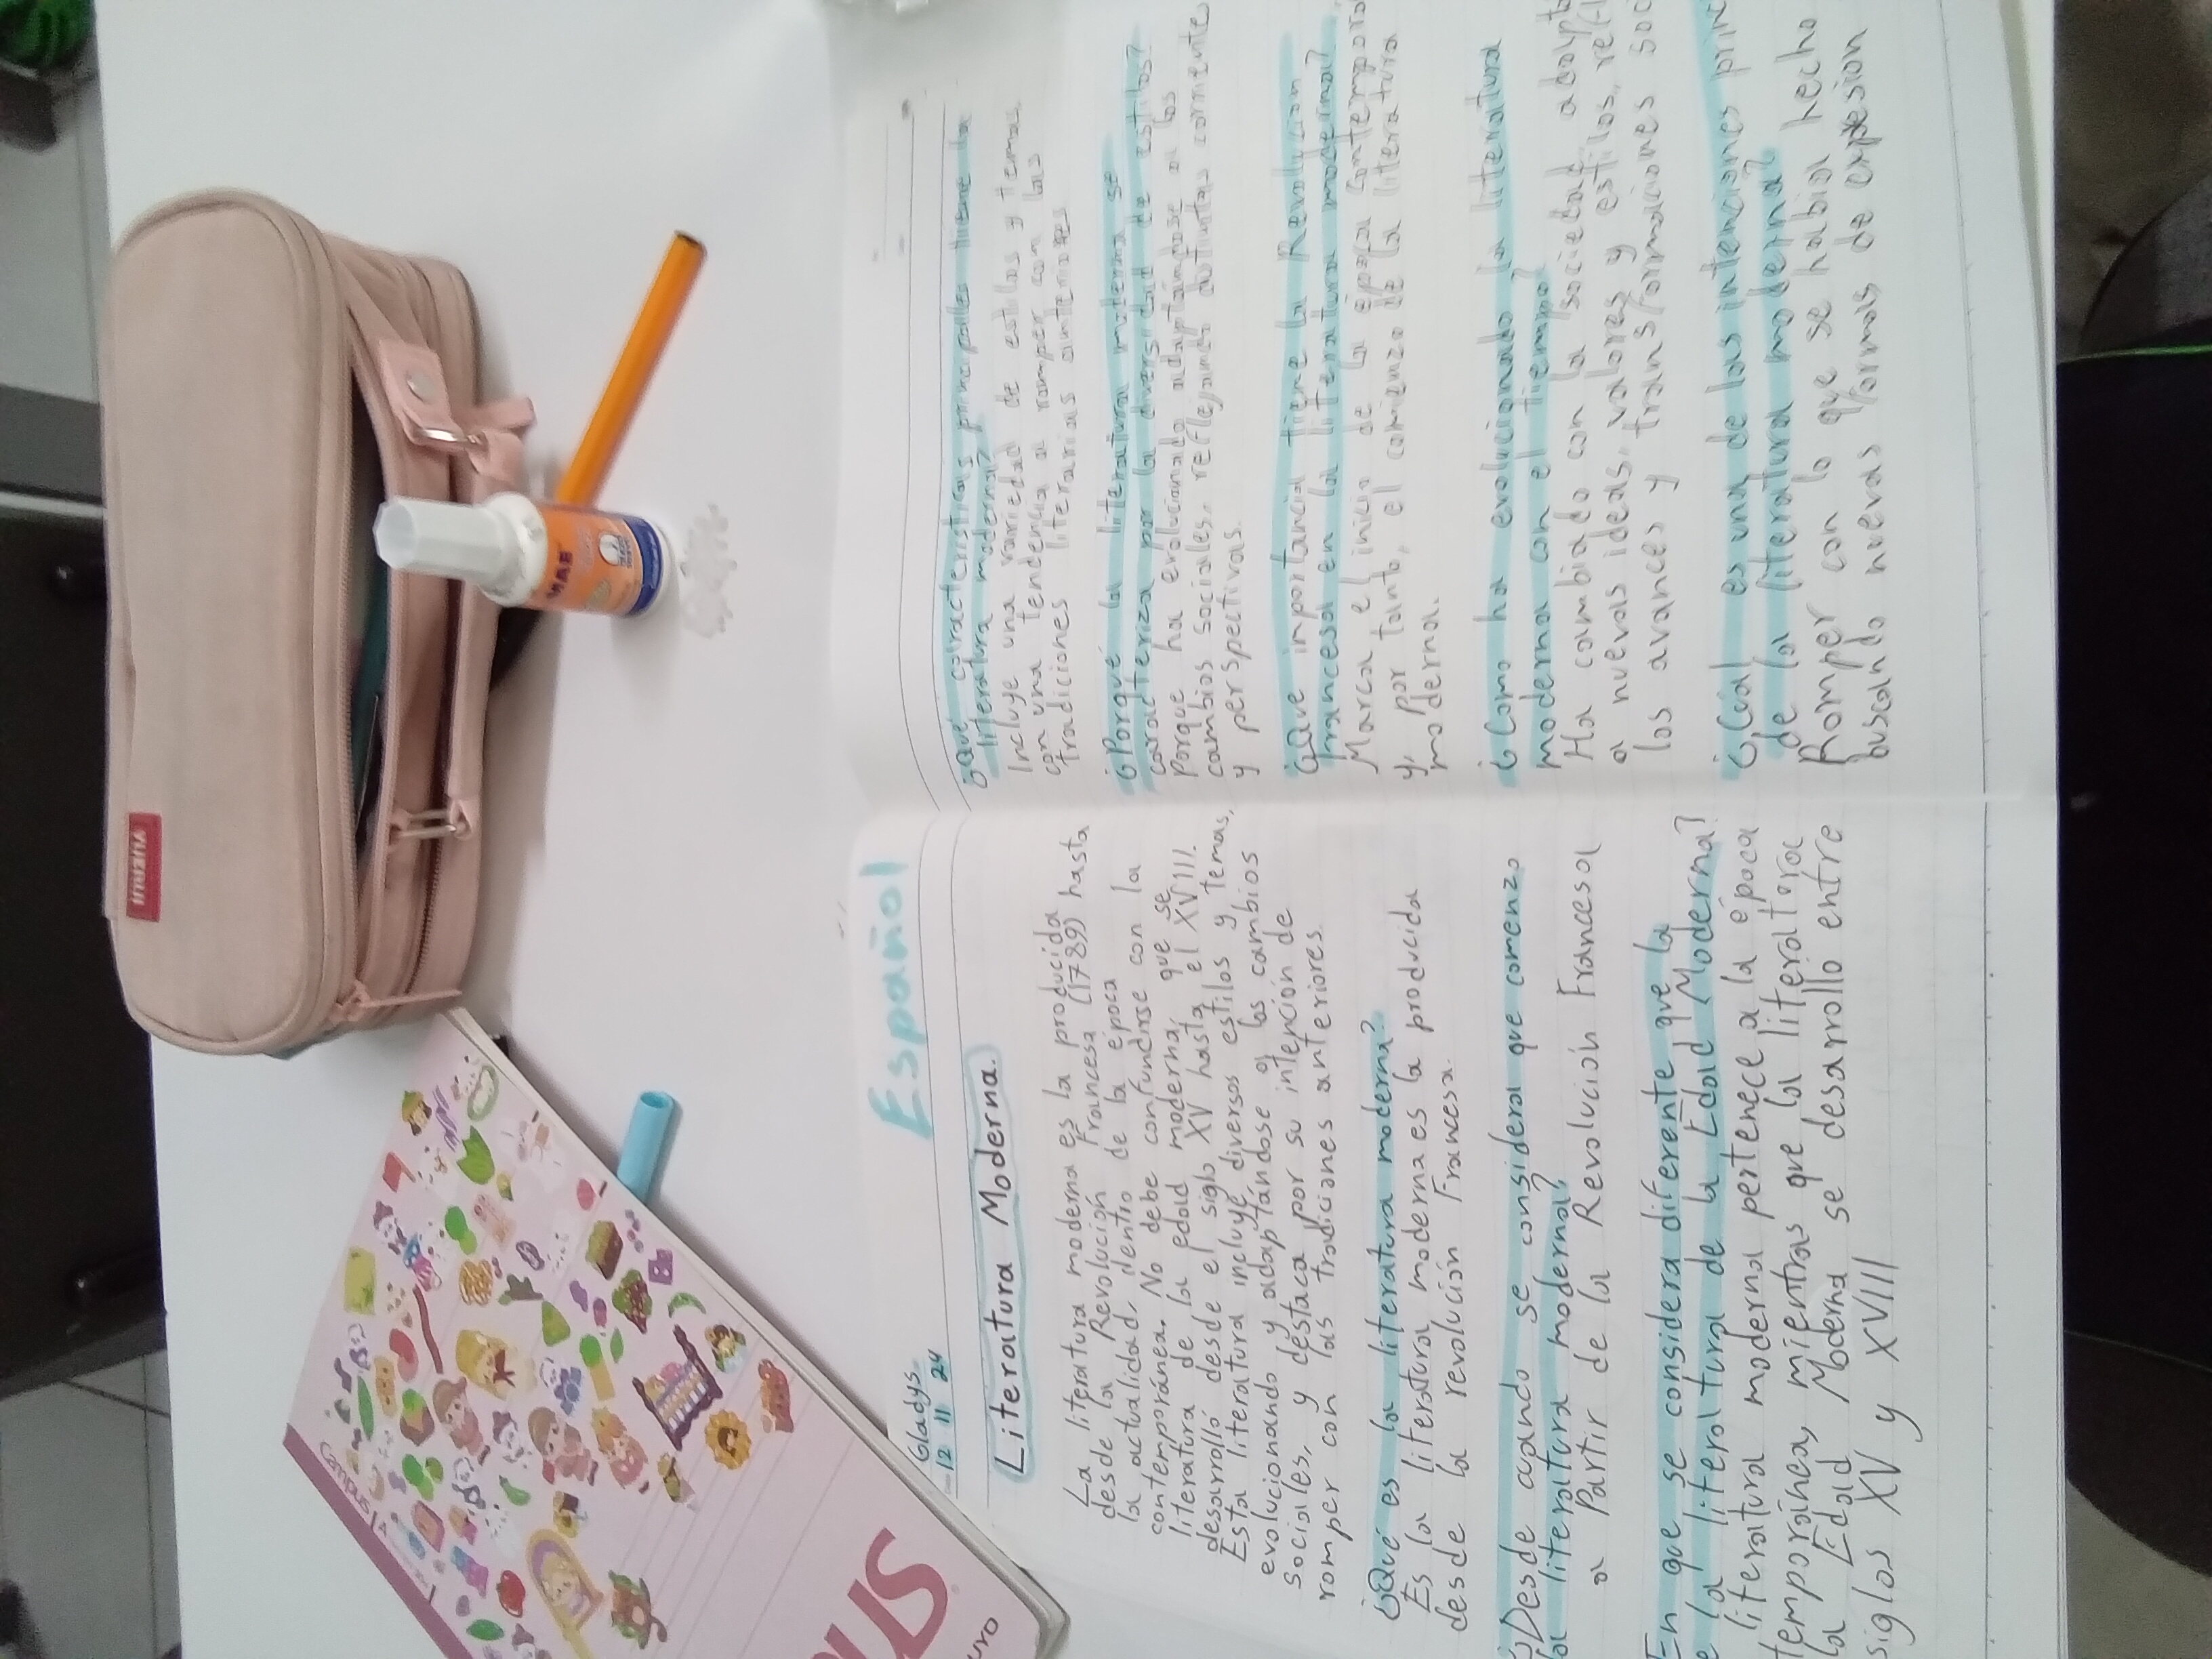 Español
Gladys.
12 11 24
Literatura Moderna.
La literatura moderna es la producida
desde la Revolución Francesa (1789) hasta
la actualidad, dentro de la época
contemporánea. No debe confundirse con la
literatura de la edad moderna, que se
desarrolló desde el siglo XV hasta el XVIII.
Esta literatura incluye diversos estilos y temas,
evolucionando y adaptándose a los cambios
sociales, y destaca por su intención de
romper con las tradiciones anteriores.
¿Qué es la literatura moderna?
Es la literatura moderna es la producida
desde la revolución Francesa.
¿Desde cuando se considera que comenzo
la literatura moderna?
a Partir de la Revolución Francesa
En que se considera diferente que la
la literatura de la Edad Moderna?
literatura moderna pertenece a la época
temporánea, mientras que la literatura
la Edad Moderna se desarrollo entre
siglos XV y XVIII
¿Qué características principales tiene la
literatura moderna?
Incluye una variedad de estilos y temas
con una tendencia a romper con las
tradiciones literarias anteriores
¿Porqué la literatura moderna se
caracteriza por la diversidad de estilos?
Porque ha evolucionado adaptándose a los
cambios sociales, reflejando distintas corrientes
y perspectivas.
¿Que importancia tiene la Revolucion
Francesa en la literatura moderna?
Marca el inicio de la época contempora
y, por tanto, el comienzo de la literatura
moderna.
¿Como ha evolucionado la literatura
moderna con el tiempo?
Ha cambiado con la sociedad adapta
a nuevas ideas, valores y estilos, refl
los avances y transformaciones soc
¿Cúal es una de las intenciones prin
de la literatura moderna?
Romper con lo que se habia hecho
buscando nuevas formas de expesion
Campus
PUS
uro
YUERUI